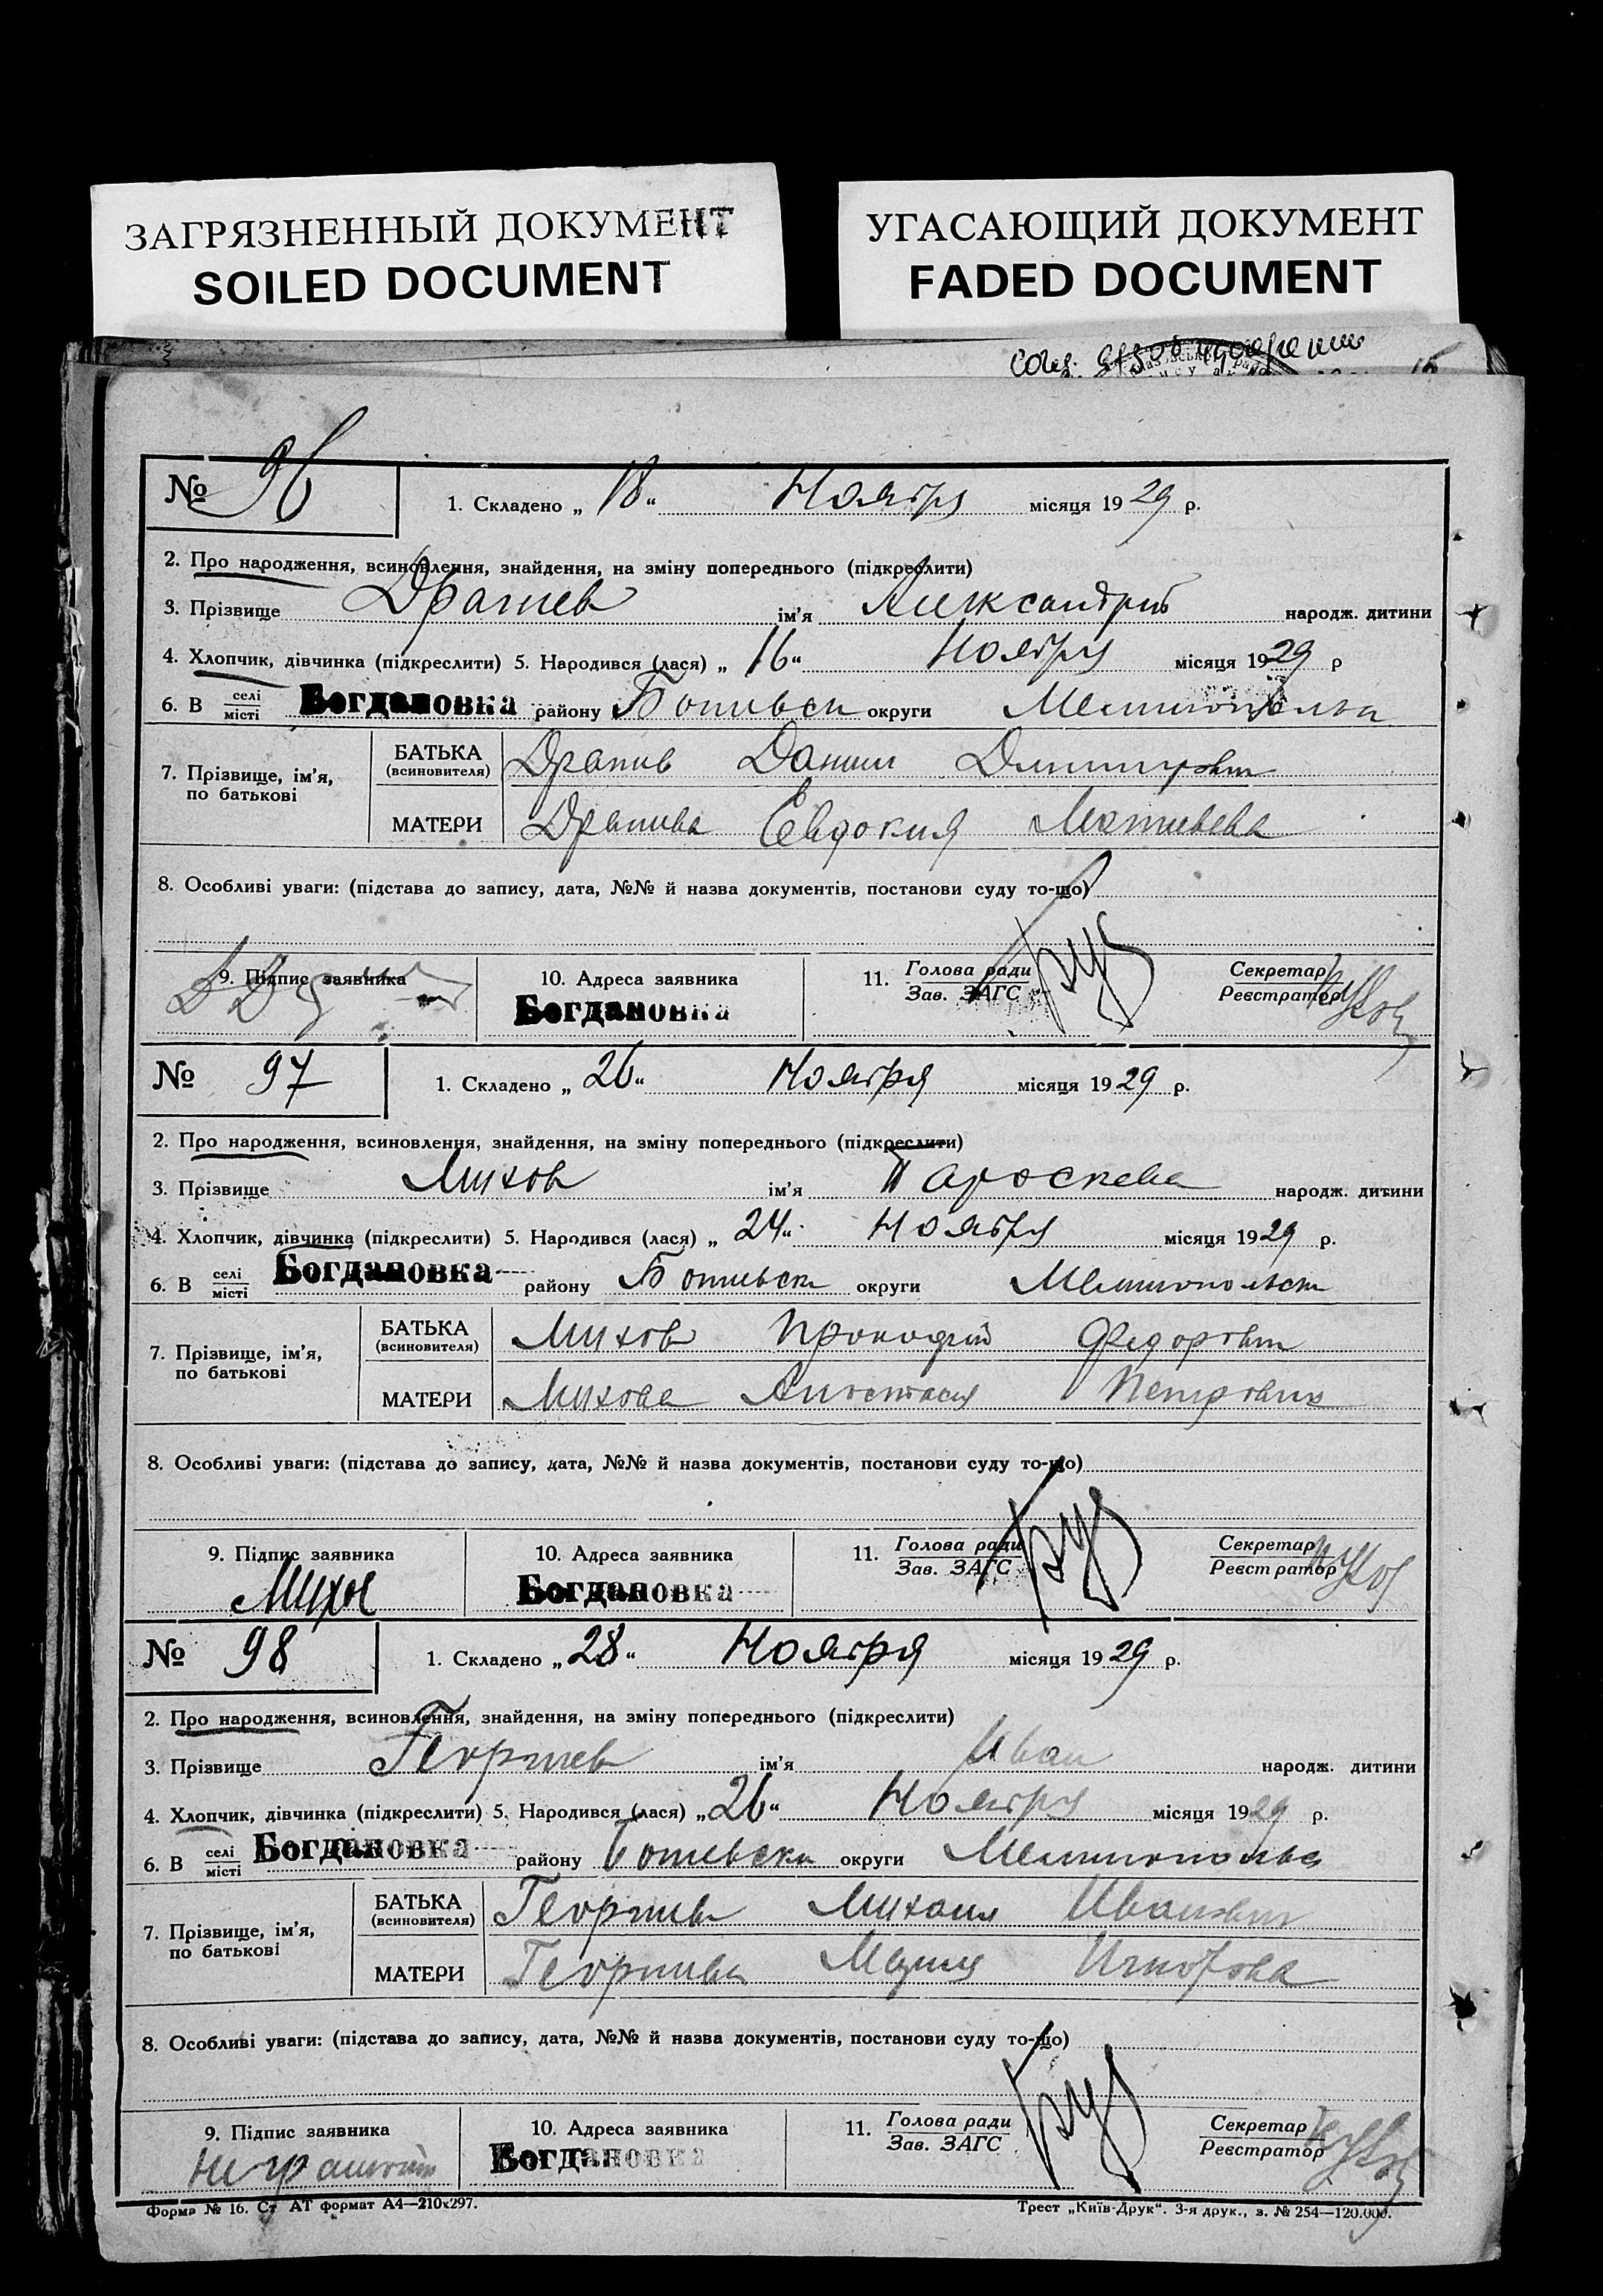 ЗАГРЯЗНЕННЫЙ ДОКУМЕНТ
SOILED DOCUMENT
УГАСАЮЩИЙ ДОКУМЕНТ
FADED DOCUMENT
№ 96
1. Складено „ 18 “ Ноября місяця 1929 р.
2. Про народження, всиновлення, знайдення, на зміну попереднього (підкреслити)
3. Прізвище ім'я Александръ народж. дитини
4. Хлопчик, дівчинка (підкреслити) 5. Народився (лася) „ 16 “ Ноября місяця 1929 р
6. В селі місті Богдановка району Ботиевск округи Мелитопольск
7. Прізвище, ім'я, по батькові
БАТЬКА (всиновителя) Данил Дмитрович
МАТЕРИ Евдокия Матвеева
8. Особливі уваги: (підстава до запису, дата, №№ й назва документів, постанови суду то-що)
9. Підпис заявника 10. Адреса заявника 11. Голова ради Зав. ЗАГС Секретар Реєстратор
Богдановка
№ 97
1. Складено „ 26 “ Ноября місяця 1929 р.
2. Про народження, всиновлення, знайдення, на зміну попереднього (підкреслити)
3. Прізвище Михов ім'я Параскева народж. дитини
4. Хлопчик, дівчинка (підкреслити) 5. Народився (лася) „ 24 “ Ноября місяця 1929 р.
6. В селі місті Богдановка району Ботиевск округи Мелитопольск
7. Прізвище, ім'я, по батькові
БАТЬКА (всиновителя) Михов Прокофій Федорович
МАТЕРИ Михова Анастасия Петровна
8. Особливі уваги: (підстава до запису, дата, №№ й назва документів, постанови суду то-що)
9. Підпис заявника 10. Адреса заявника 11. Голова ради Зав. ЗАГС Секретар Реєстратор
Михов Богдановка
№ 98
1. Складено „ 28 “ Ноября місяця 1929 р.
2. Про народження, всиновлення, знайдення, на зміну попереднього (підкреслити)
3. Прізвище Георгиев ім'я Иван народж. дитини
4. Хлопчик, дівчинка (підкреслити) 5. Народився (лася) „ 26 “ Ноября місяця 1929 р.
6. В селі місті Богдановка району Ботиевск округи Мелитопольс
7. Прізвище, ім'я, по батькові
БАТЬКА (всиновителя) Георгиев Михаил Иванович
МАТЕРИ Георгиева Мария
8. Особливі уваги: (підстава до запису, дата, №№ й назва документів, постанови суду то-що)
9. Підпис заявника 10. Адреса заявника 11. Голова ради Зав. ЗАГС Секретар Реєстратор
Богдановка
Форма № 16. Ст АТ формат А4—210х297.
Трест „Київ-Друк“. 3-я друк., з. № 254—120.000.